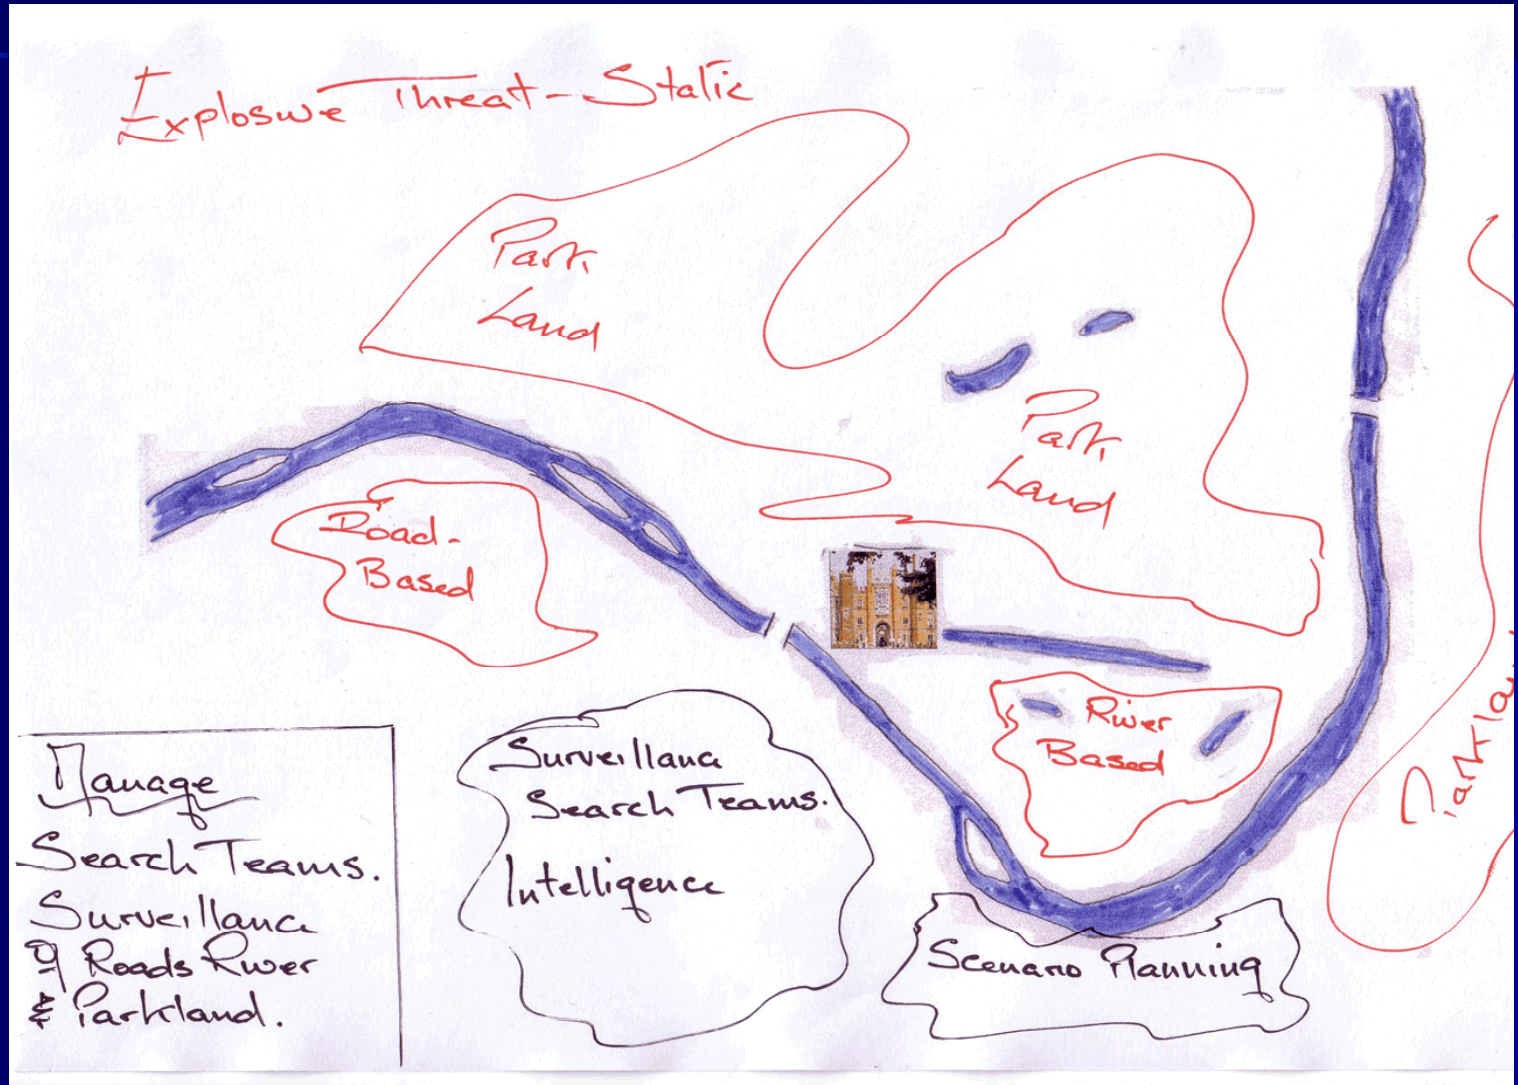 Explosive Threat - Static
Park
Land
Park
Land
Road-
Based
River
Based
Parkla
Manage
Search Teams.
Surveillance
of Roads River
& Parkland.
Surveillance
Search Teams.
Intelligence
Scenario Planning